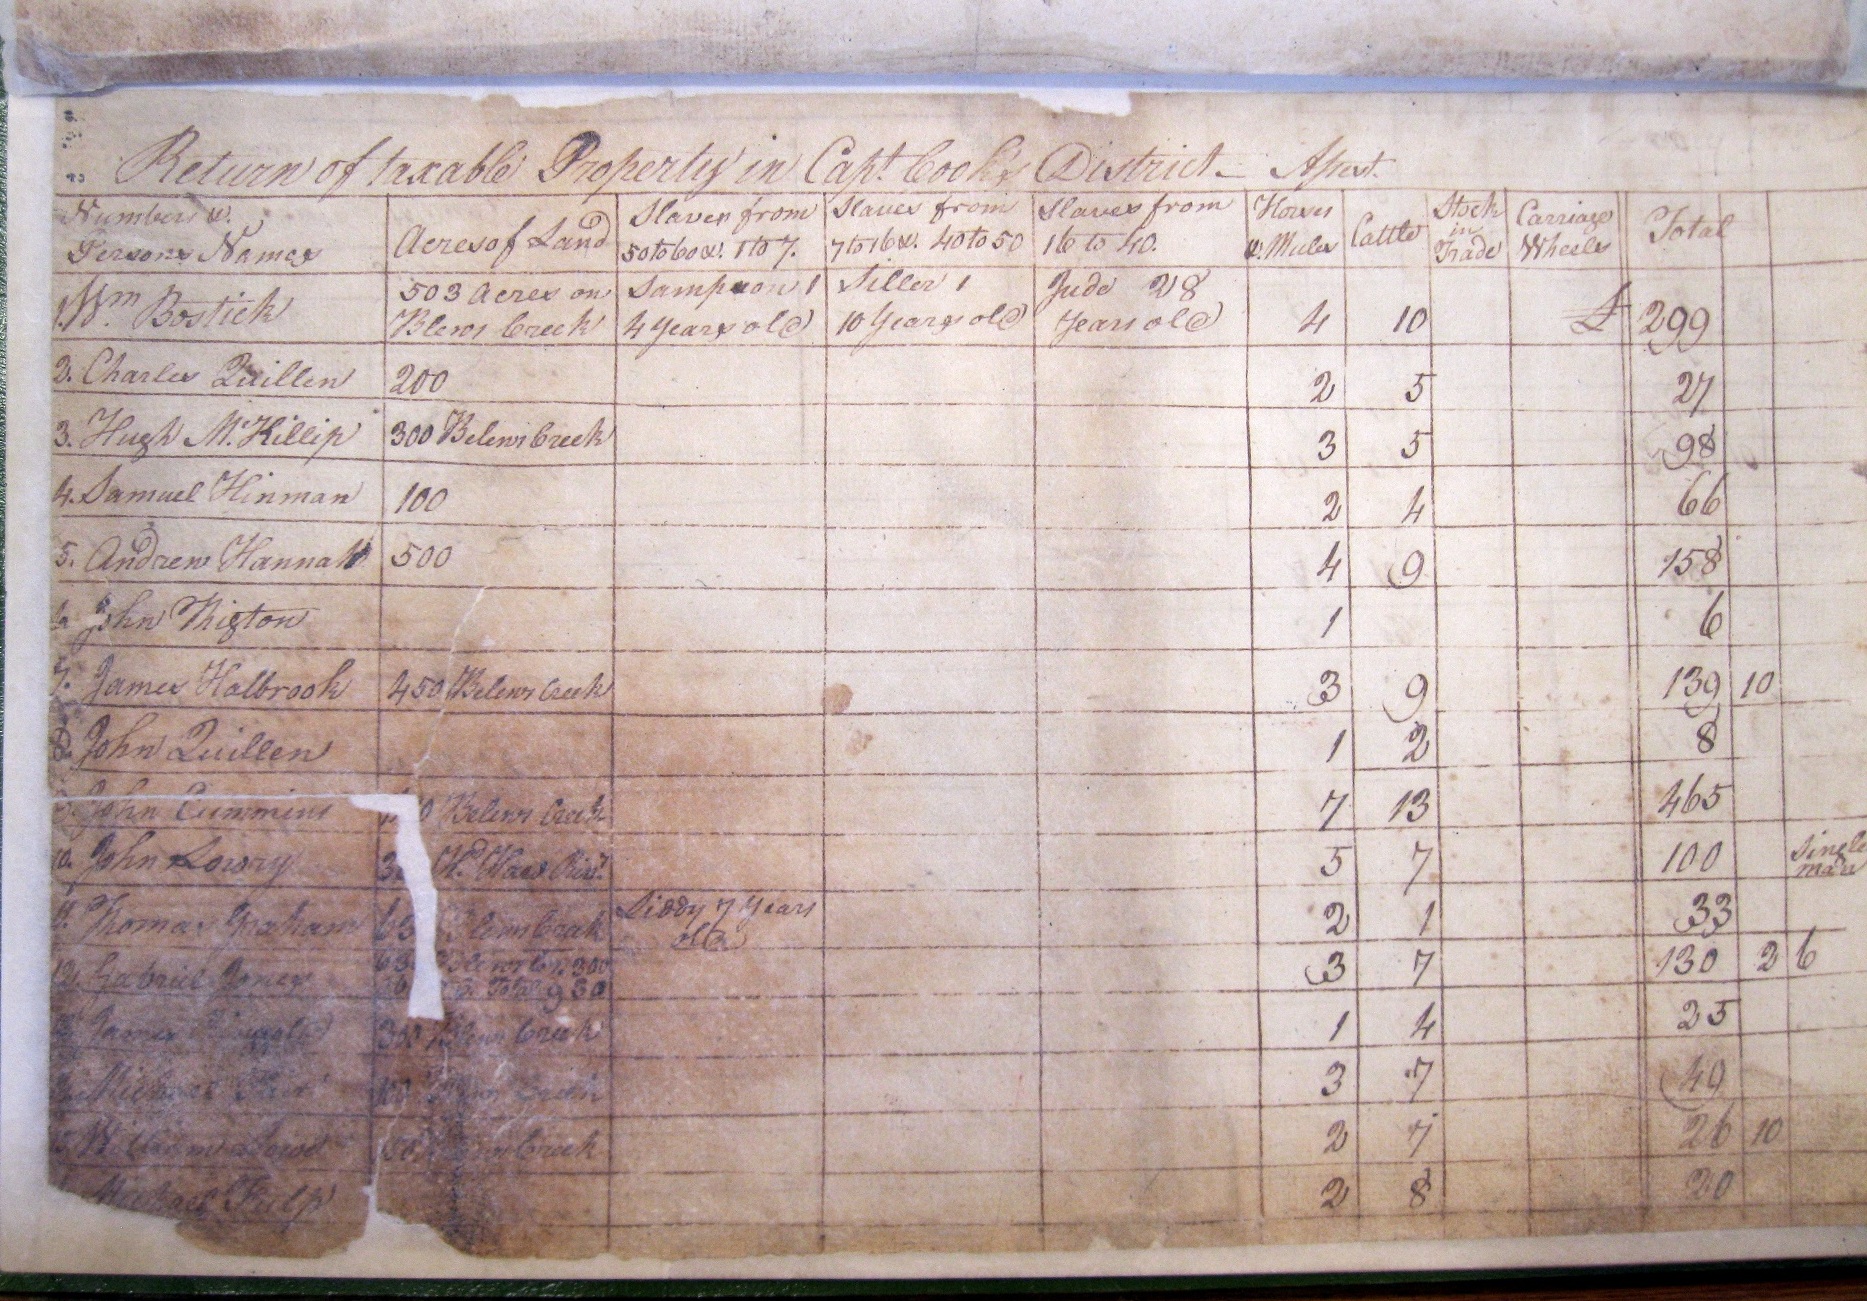 Return of taxable Property in Capt. Cook's District - Assest.
Numbers &. Persons Names Acres of Land Slaves from 50 to 60 &. 1 to 7. Slaves from 7 to 16 &. 40 to 50 Slaves from 16 to 40. Horses &. Mules Cattle Stock in Trade Carriage Wheels Total
1. Wm Bostick 503 Acres on Blews Creek Sampson 1 4 Years old Siller 1 10 Years old Jude 28 Years old 4 10 £ 299
2. Charles Quillen 200 2 5 27
3. Hugh Mc.Killip 300 Belews Creek 3 5 98
4. Samuel Hinman 100 2 4 66
5. Andrew Hannah 500 4 9 158
6 John 1 6
7. James Holbrook 450 Belews Creek 3 9 139 10
8. John Quillen 1 2 8
John Cummins Belews Creek 7 13 465
10. John Lowry 5 7 100 Single man
11. Thomas Graham Blews Creek Siddy 7 Years old 2 1 33
12. Gabriel Jones 300 Total 930 3 7 130 2 6
James 300 Blews Creek 1 4 25
Michael 100 3 7 49
William Creek 2 7 26 10
Michael Fulp 2 8 20